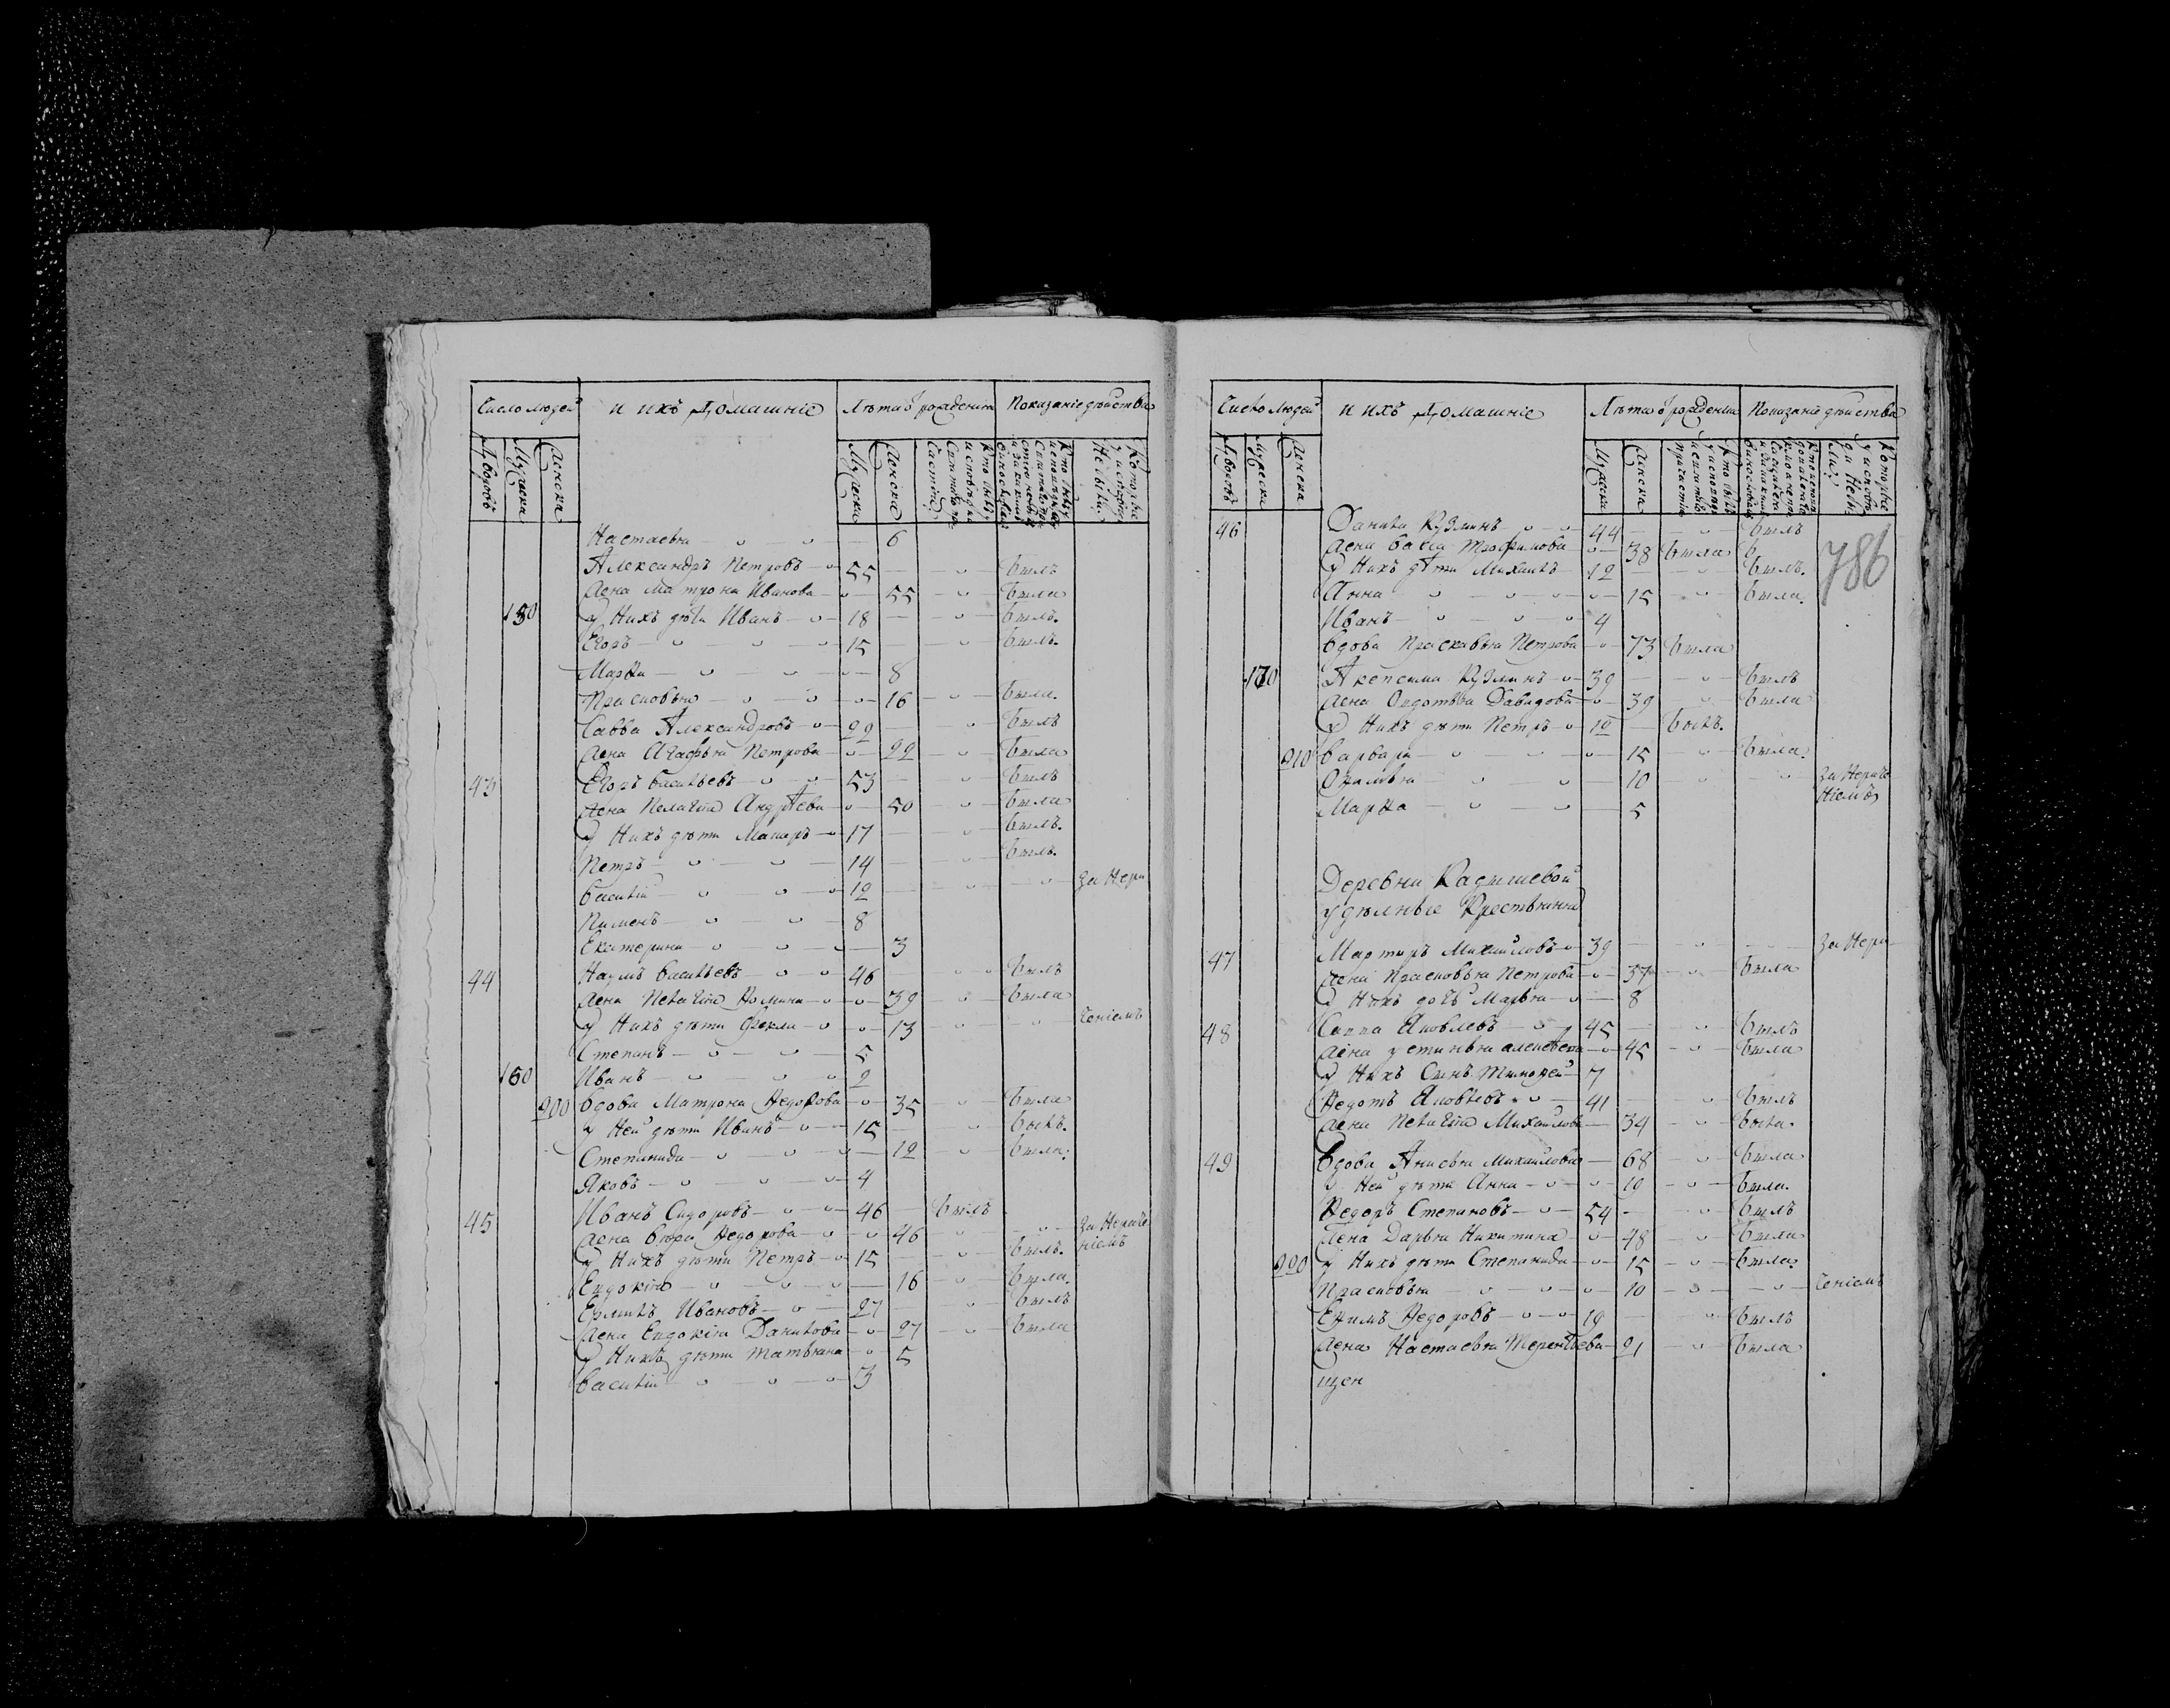 Число людей и ихъ Домашніе Лѣта ѿ рожденія Показаніе дѣйства
Дворовъ Мужеска Женска Мужеска Женска
Которые у исповеди Не были.
Настасья 6
Александръ Петровъ 55 былъ
Жена Матрона Иванова 55 была
150 у Нихъ дѣти Иванъ 18 былъ.
Егоръ 15 былъ.
Марѳа 8
Прасковья 16 была.
Савва Александровъ 22 былъ
Жена Агафья Петрова 22 была
43 Егоръ Васильевъ 53 былъ
Жена Пелагія Андрѣева 50 была
у Нихъ дѣти Макаръ 17 былъ.
Петръ 14 былъ.
Василій 12 За Нера
Пименъ 8
Екатерина 3
44 Наумъ Васильевъ 46 былъ
Жена Пелагія Фомина 39 была
у Нихъ дѣти Фекла 13 ченіемъ
Степанъ 5
160 Иванъ 2
200 Вдова Матрона Ѳедорова 35 была
у Ней дѣти Иванъ 15 былъ.
Степанида 12 была.
Яковъ 4
45 Иванъ Сидоровъ 46 былъ
Жена Вѣра Ѳедорова 46 За Нераче
у Нихъ дѣти Петръ 15 былъ. ніемъ
Евдокія 16 была.
Ермилъ Ивановъ 27 былъ
Жена Евдокія Данилова 27 была
у Нихъ дѣти Татьяна 5
Василій 3
Число людей и ихъ Домашніе Лѣта ѿ рожденія Показаніе дѣйства
Дворовъ Мужеска Женска Мужеска Женска
786
46 Данила Кузминъ 44 былъ
Жена Васса Трофимова 38 была
у Нихъ дѣти Михаилъ 12 былъ.
Анна 15 была.
Иванъ 4
Вдова Прасковья Петрова 73 была
170 Акепсима Кузминъ 39 былъ
Жена Ѳедотья Давидова 39 была
у Нихъ дѣти Петръ 12 былъ.
210 Варвара 15 была.
10 За Нераче
Марѳа 5 ніемъ
Деревни Кадышевой
удѣлные Крестьянне
47 Мартиръ Михайловъ 39 За Нера
Жена Прасковья Петрова 37 была
у Нихъ дочь Марья 8
48 Савва Яковлевъ 45 былъ
Жена устинья алексѣева 45 была
у Нихъ Сынъ Тимоѳей 7
Ѳедотъ Яковлевъ 41 былъ
Жена Пелагія Михайлова 34 была.
49 Вдова Анисья Михайлова 68 была
у Ней дѣти Анна 19 была.
Ѳедоръ Степановъ 54 былъ
Жена Дарья Никитина 48 была
220 у Нихъ дѣти Степанида 15 была.
Прасковья 10 ченіемъ
Ефимъ Ѳедоровъ 19 былъ
Жена Настасья Терентьева 21 была
щен